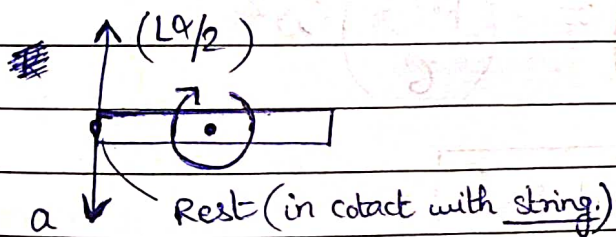 (Lα/2)
a
Rest (in cotact with string.)